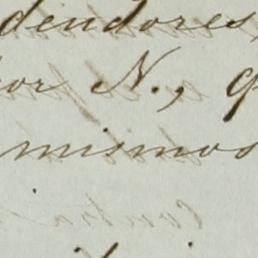 deudores,
or N., q
mismos